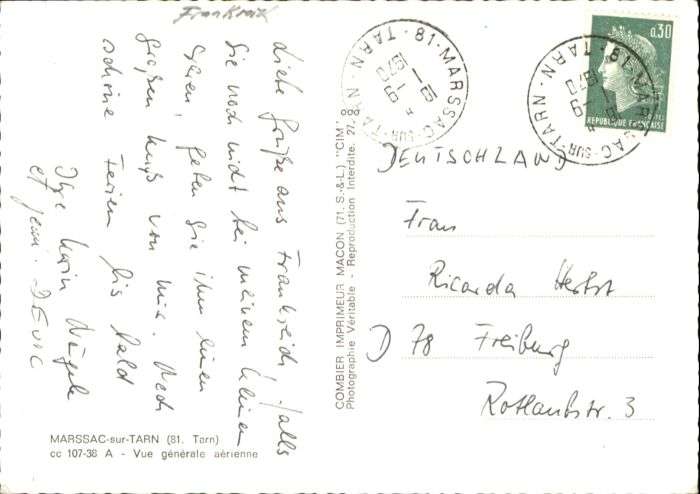 Frankreich
Liebe Grüße aus Frankreich! Falls
Sie noch nicht bei meinem kleinen
geben Sie ihm einen
großen Kuß von mir. Noch
schöne Ferien bis bald
Ihre Karin
et Jean
MARSSAC-sur-TARN (81. Tarn)
cc 107-38 A - Vue générale aérienne
COMBIER IMPRIMEUR MACON (71. S.-&-L.) "CIM"
Photographie Véritable - Reproduction Interdite.
81-MARSSAC-SUR-TARN. TARN
1970
0,30
REPUBLIQUE FRANÇAISE
81-MARSSAC-SUR-TARN. TARN
1970
DEUTSCHLAND
Frau
Ricarda Herbst
D 78 Freiburg
Rotlaubstr. 3